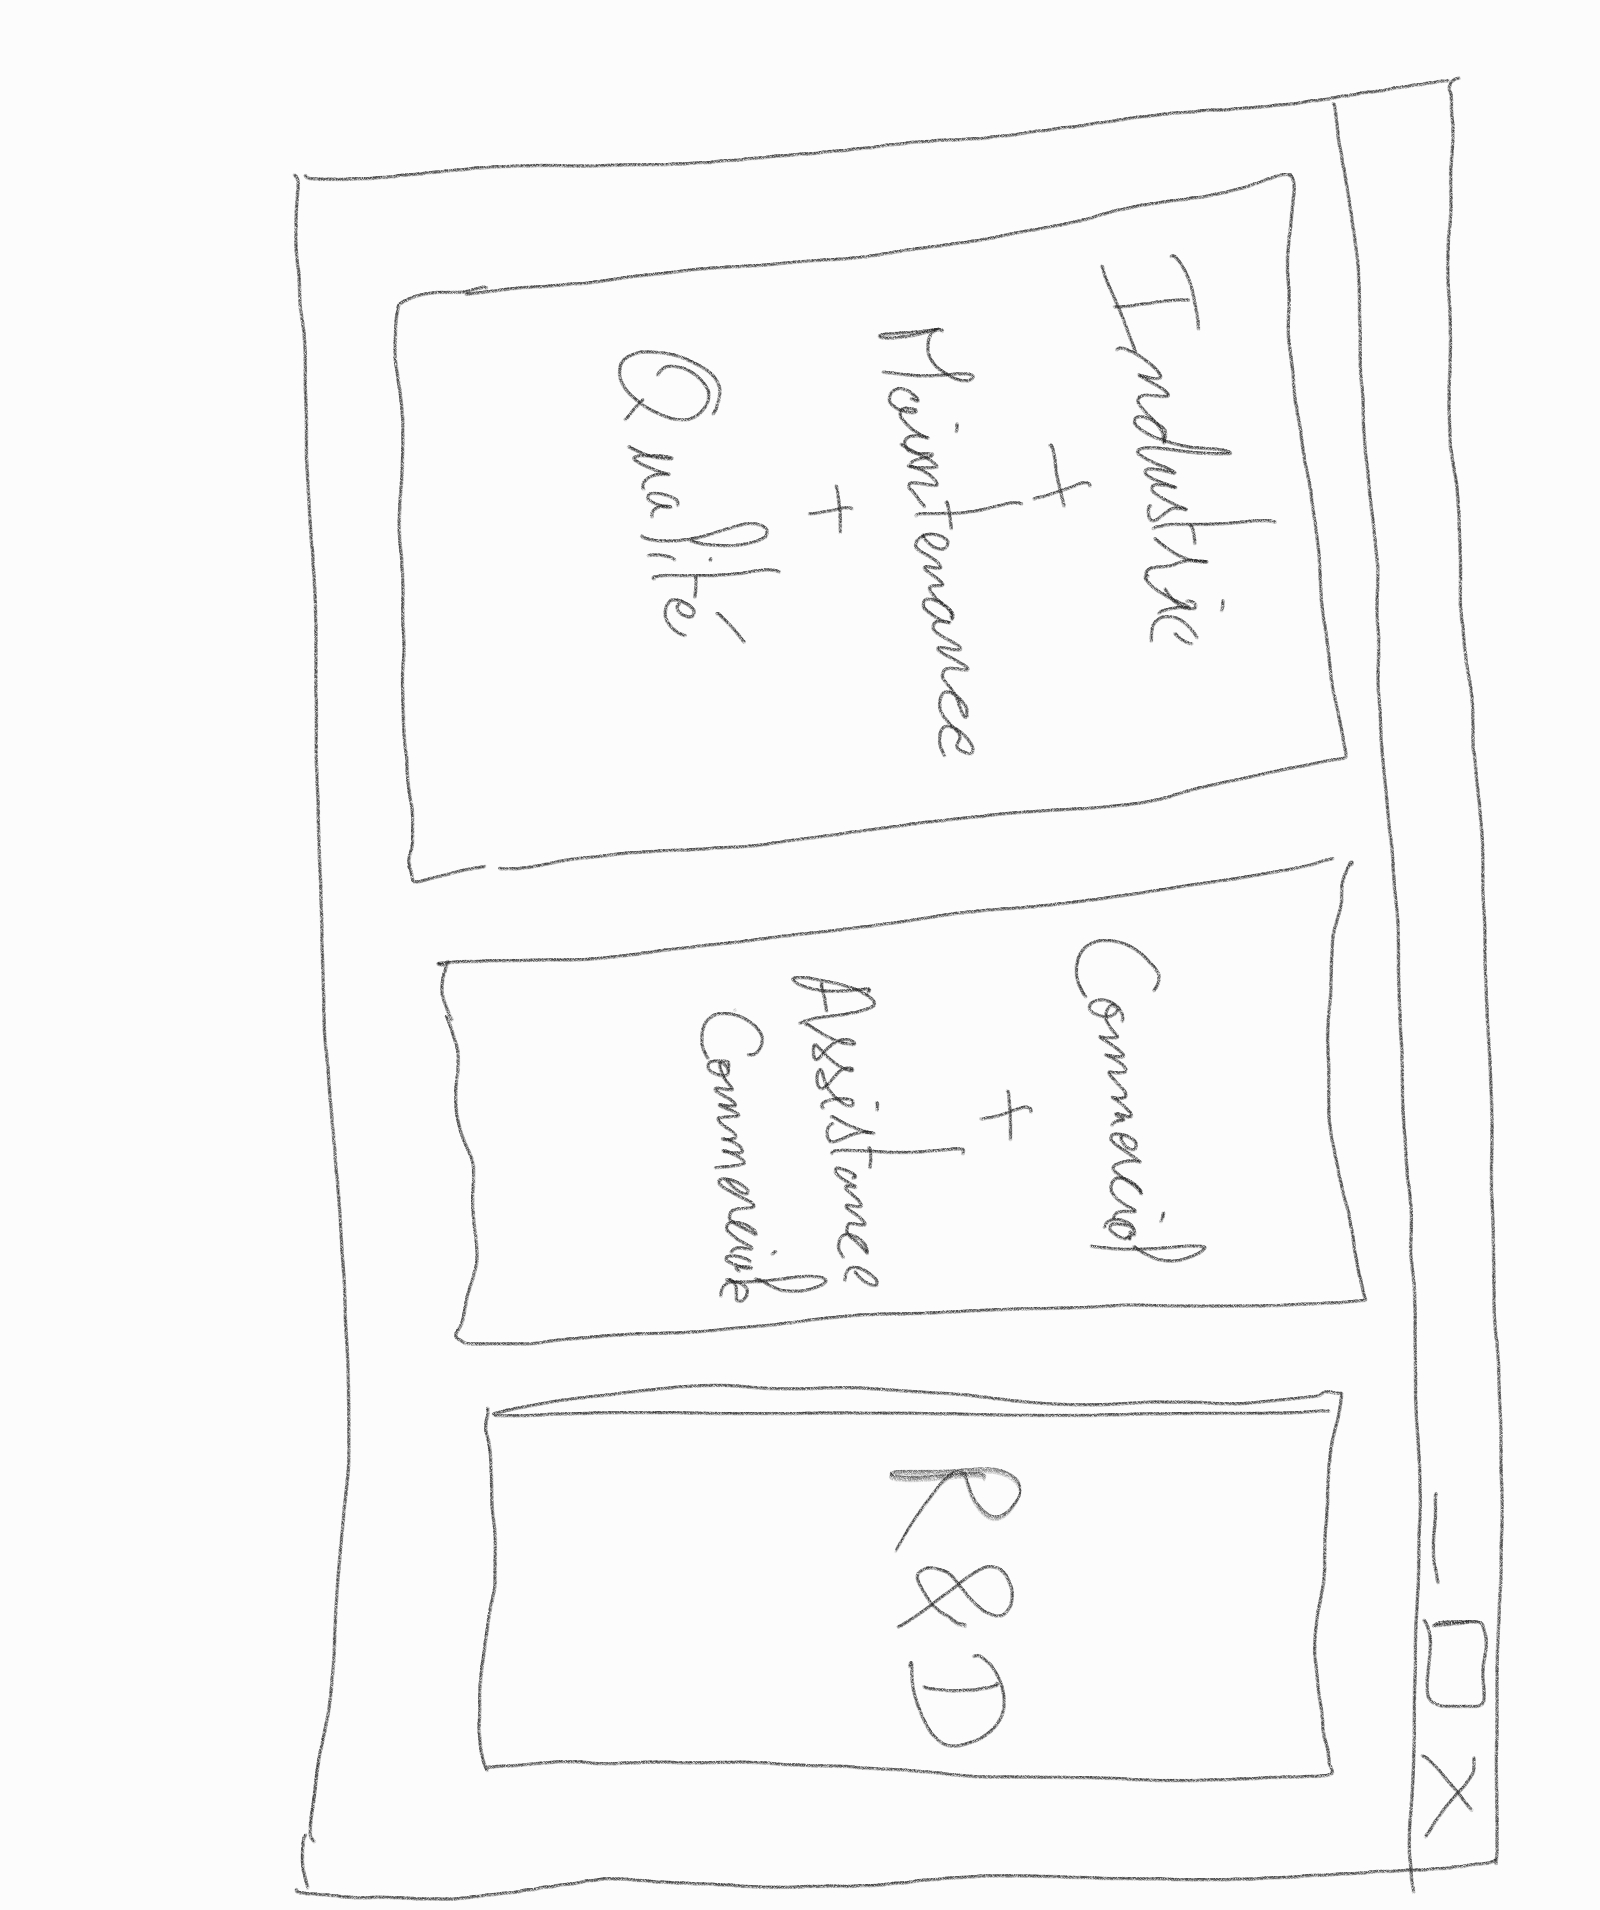 Industrie
+
Maintenance
+
Qualité
Commercial
+
Assistance
Commerciale
R & D